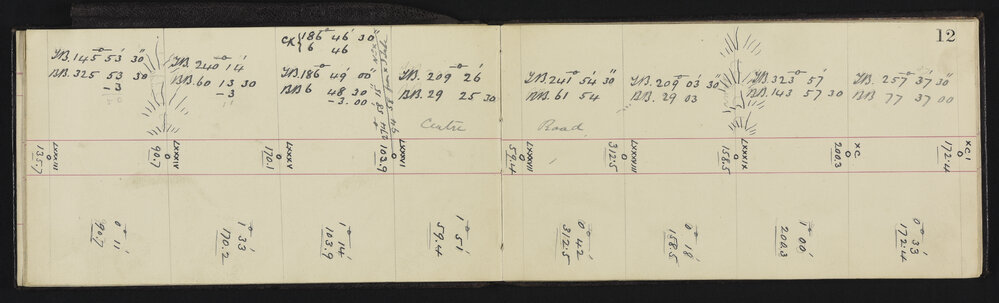 12
F.B. 145° 53' 30"
B.B. 325 53 30
-3
F.B. 240° 14'
B.B. 60 13 30
-3
CK { 186° 46' 30
6 46
F.B. 186° 49' 00"
B.B 6 48 30
-3.00
F.B. 209° 26'
B.B. 29 25 30
Centre
F.B. 241° 54' 30"
B.B. 61 54
Road
F.B. 209° 03' 30"
B.B. 29 03
F.B. 323° 57'
B.B. 143 57 30
F.B. 257° 37' 30"
B.B 77 37 00
LXXXIII
135.7
LXXXIV
90.7
LXXXV
170.1
LXXXVI
103.9
LXXXVII
59.4
LXXXVIII
312.5
LXXXIX
158.5
XC
200.3
XCI
172.4
0° 11'
90.7
1° 33'
170.2
1° 14'
103.9
1° 51'
59.4
0° 42'
312.5
0° 18'
158.5
1° 00'
200.3
0° 33'
172.4